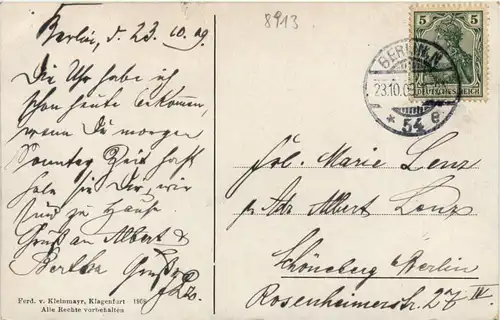 Berlin, d. 23.10.09.
Die Uhr habe ich
schon heute bekommen,
wenn Du morgen
Sonntag Zeit hast
hole sie Dir, wir
sind zu Hause
Gruß an Albert &
Bertha Gruß
8913
5 5
DEUTSCHES REICH
BERLIN N
23.10.09
* 54 e
Frl. Marie Lenz
p. Adr Albert Lenz
Schöneberg b/Berlin
Rosenheimerstr. 27 IV.
Ferd. v. Kleinmayr, Klagenfurt 1908
Alle Rechte vorbehalten